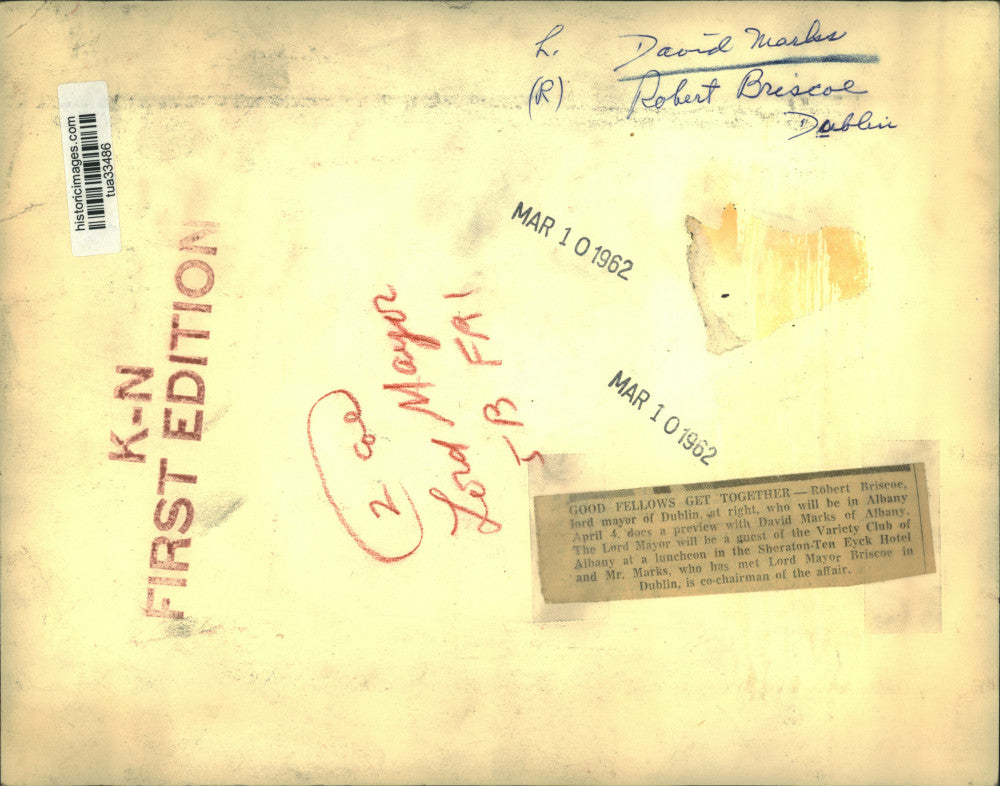 L. David Marks
(R) Robert Briscoe
Dublin
historicimages.com
tua33486
MAR 10 1962
K-N
FIRST EDITION
2 col
Lord Mayor
FA1
MAR 10 1962
GOOD FELLOWS GET TOGETHER — Robert Briscoe,
lord mayor of Dublin, at right, who will be in Albany
April 4, does a preview with David Marks of Albany.
The Lord Mayor will be a guest of the Variety Club of
Albany at a luncheon in the Sheraton-Ten Eyck Hotel
and Mr. Marks, who has met Lord Mayor Briscoe in
Dublin, is co-chairman of the affair.